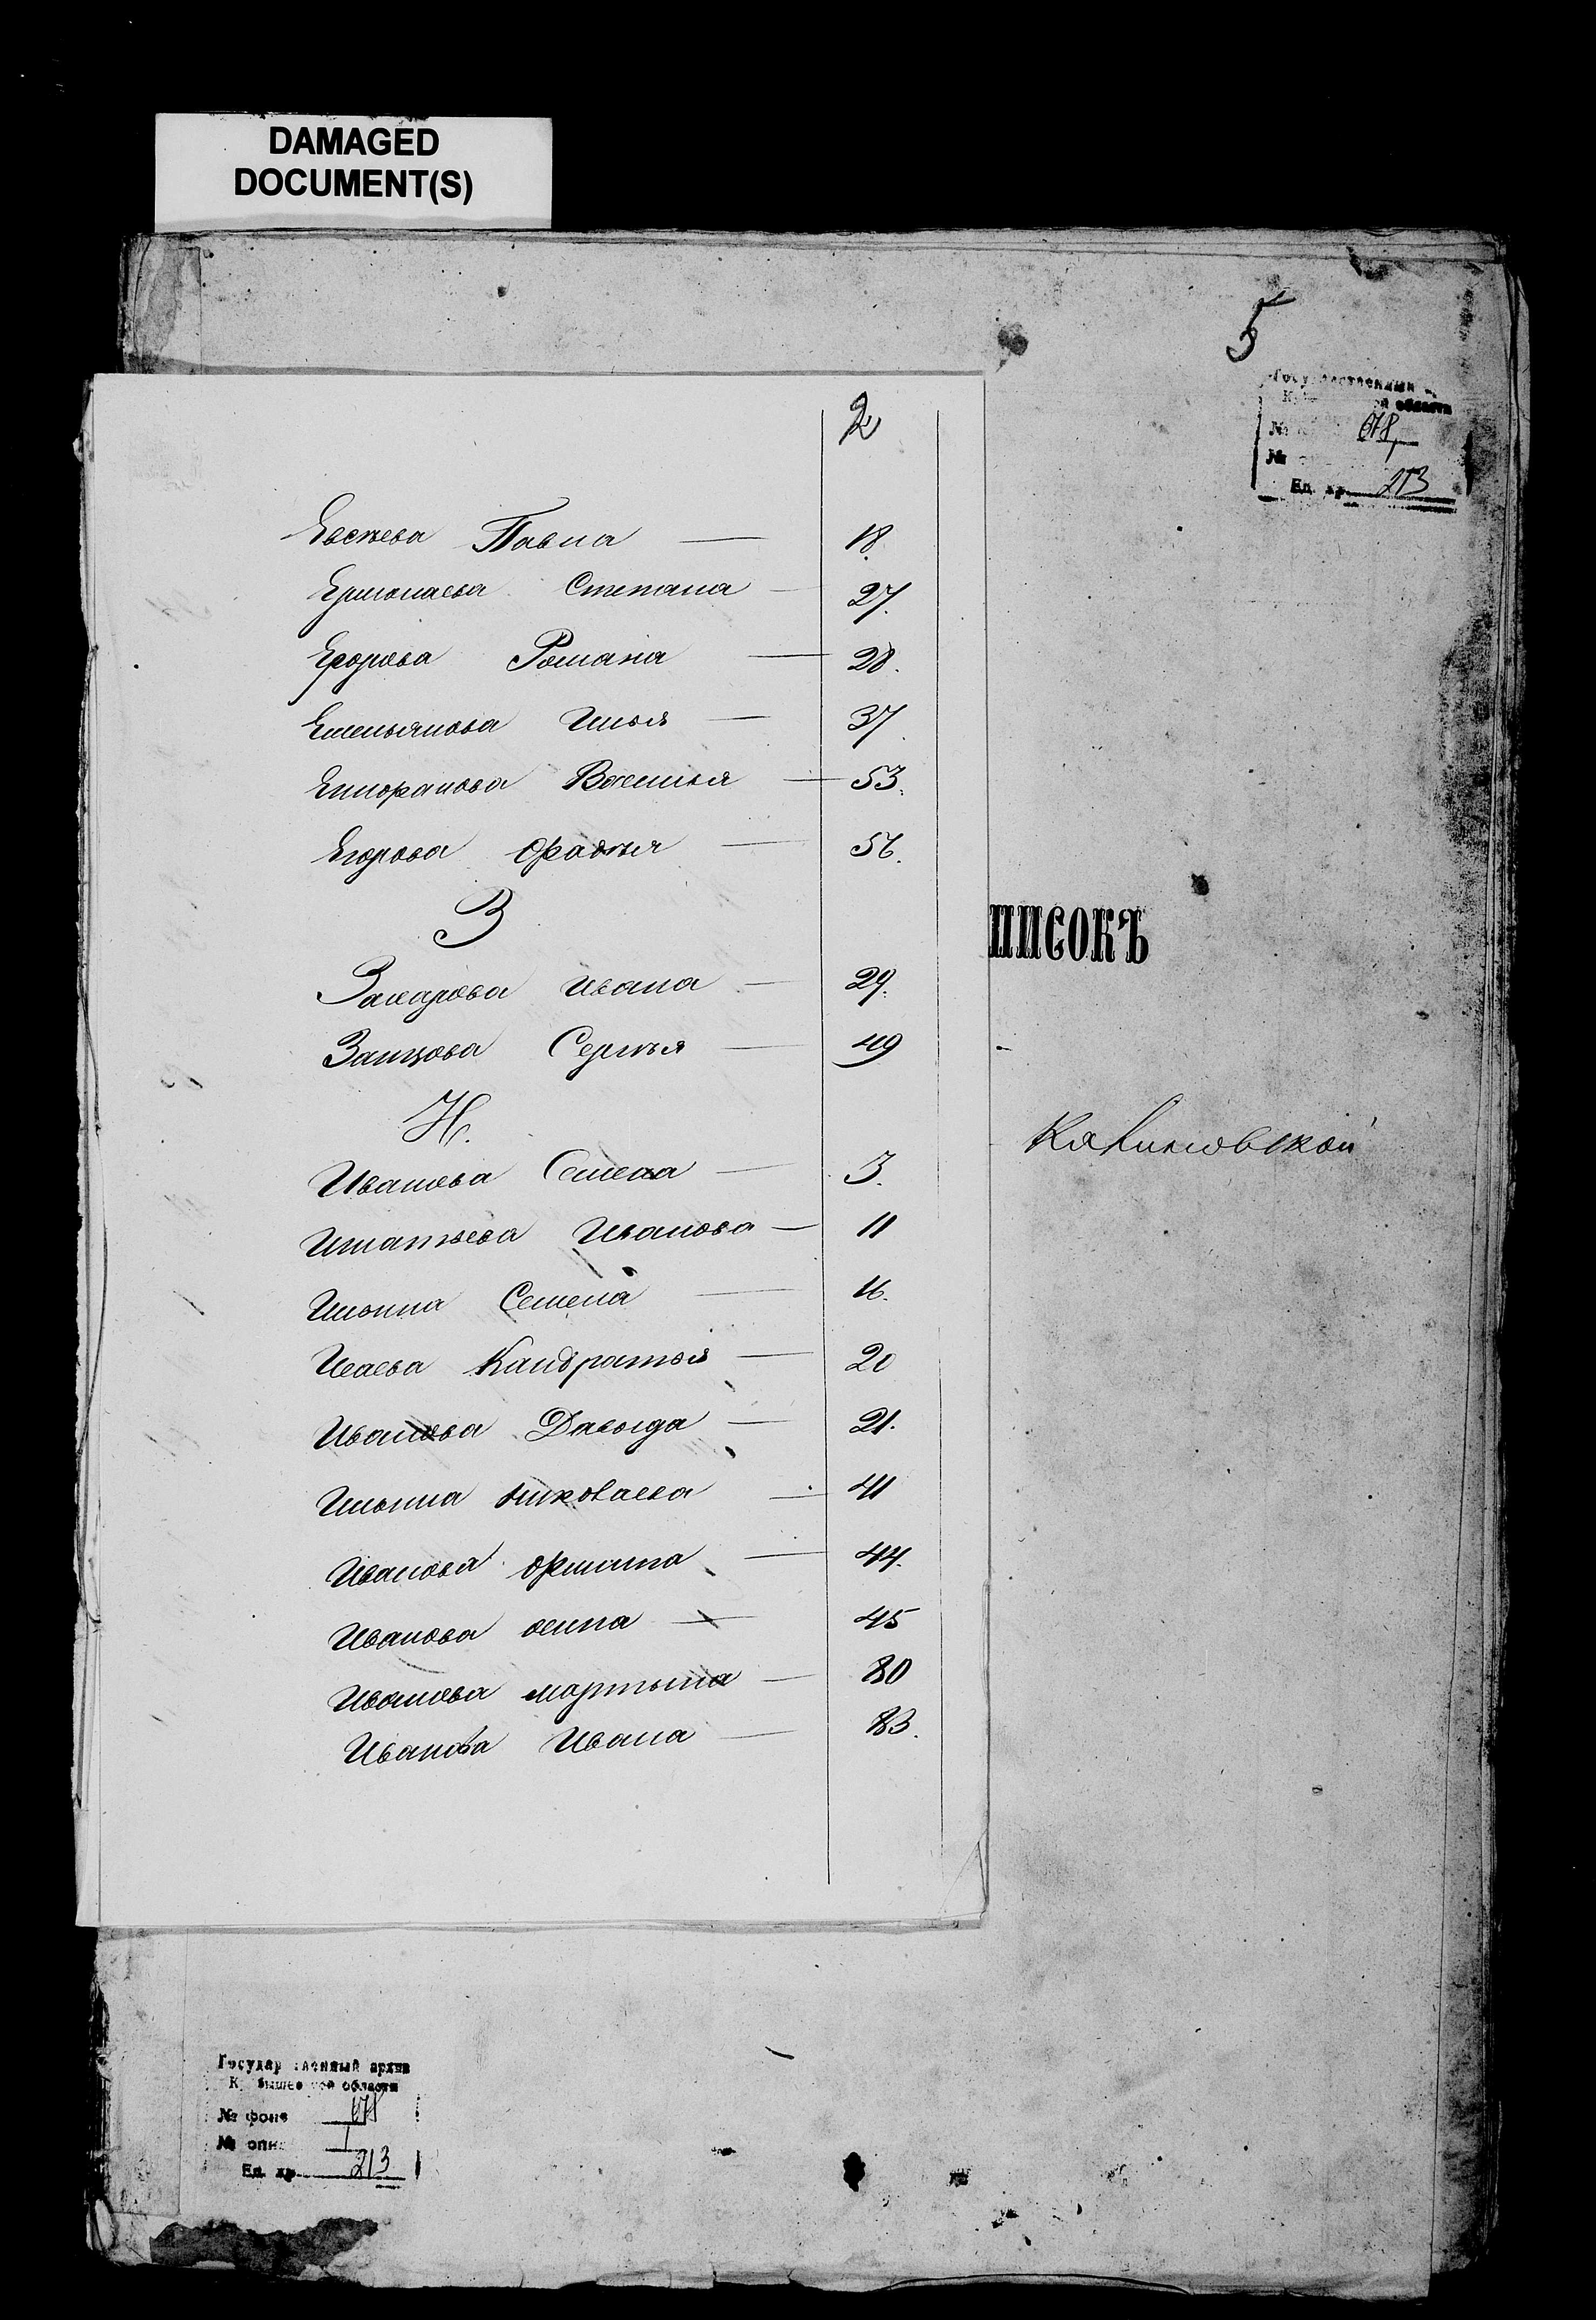 DAMAGED
DOCUMENT(S)
5
Государственный
области
№ 678,
№
Ед. хр. 213
2
Евсѣева Павла — 18.
Ермолаева Степана — 27.
Егорова Романа — 28.
Емельянова Илья — 37.
Василья — 53.
Егорова Фадѣя — 56.
З
Захарова Ивана — 29.
Зайцова Сергѣя — 49
И.
Иванова Семена — 3.
Игнатьева Иванова — 11
Ильина Семена — 16.
Исаева Кандратья — 20
Иванова Давыда — 21.
Ильина Николаева — 41
Иванова Филипа — 44.
Иванова осипа — 45
Иванова мартына — 80
Иванова Ивана — 83.
ПИСОКЪ
Калиновской
Государственный архив
К бышев ской области
№ фонд 678
№ опис 1
Ед. хр. 213